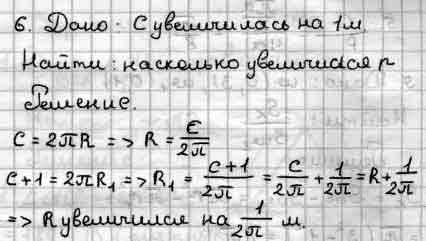 6. Дано: С увеличилась на 1 м.
Найти: насколько увеличился r
Решение.
C = 2πR => R = C/2π
C+1 = 2πR₁ => R₁ = (C+1)/2π = C/2π + 1/2π = R + 1/2π
=> R увеличился на 1/2π м.